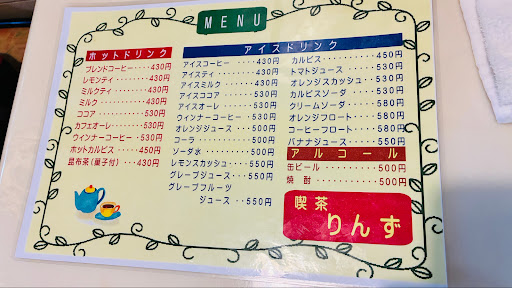 MENU
ホットドリンク
ブレンドコーヒー‥430円
レモンティ‥‥‥430円
ミルクティ‥‥‥430円
ミルク‥‥‥‥430円
ココア‥‥‥‥530円
カフェオーレ‥‥530円
ウィンナーコーヒー‥530円
ホットカルピス‥‥450円
昆布茶(菓子付)‥‥430円
アイスドリンク
アイスコーヒー‥‥430円
アイスティ‥‥‥430円
アイスミルク‥‥430円
アイスココア‥‥530円
アイスオーレ‥‥530円
ウィンナーコーヒー‥530円
オレンジジュース‥‥500円
コーラ‥‥‥‥500円
ソーダ水‥‥‥500円
レモンスカッシュ‥‥550円
グレープジュース‥‥550円
グレープフルーツ
ジュース‥‥550円
カルピス‥‥‥450円
トマトジュース‥‥530円
オレンジスカッシュ‥530円
カルピスソーダ‥‥530円
クリームソーダ‥‥580円
オレンジフロート‥‥580円
コーヒーフロート‥‥580円
バナナジュース‥‥550円
アルコール
缶ビール‥‥‥500円
焼 酎‥‥‥‥500円
喫茶
りんず